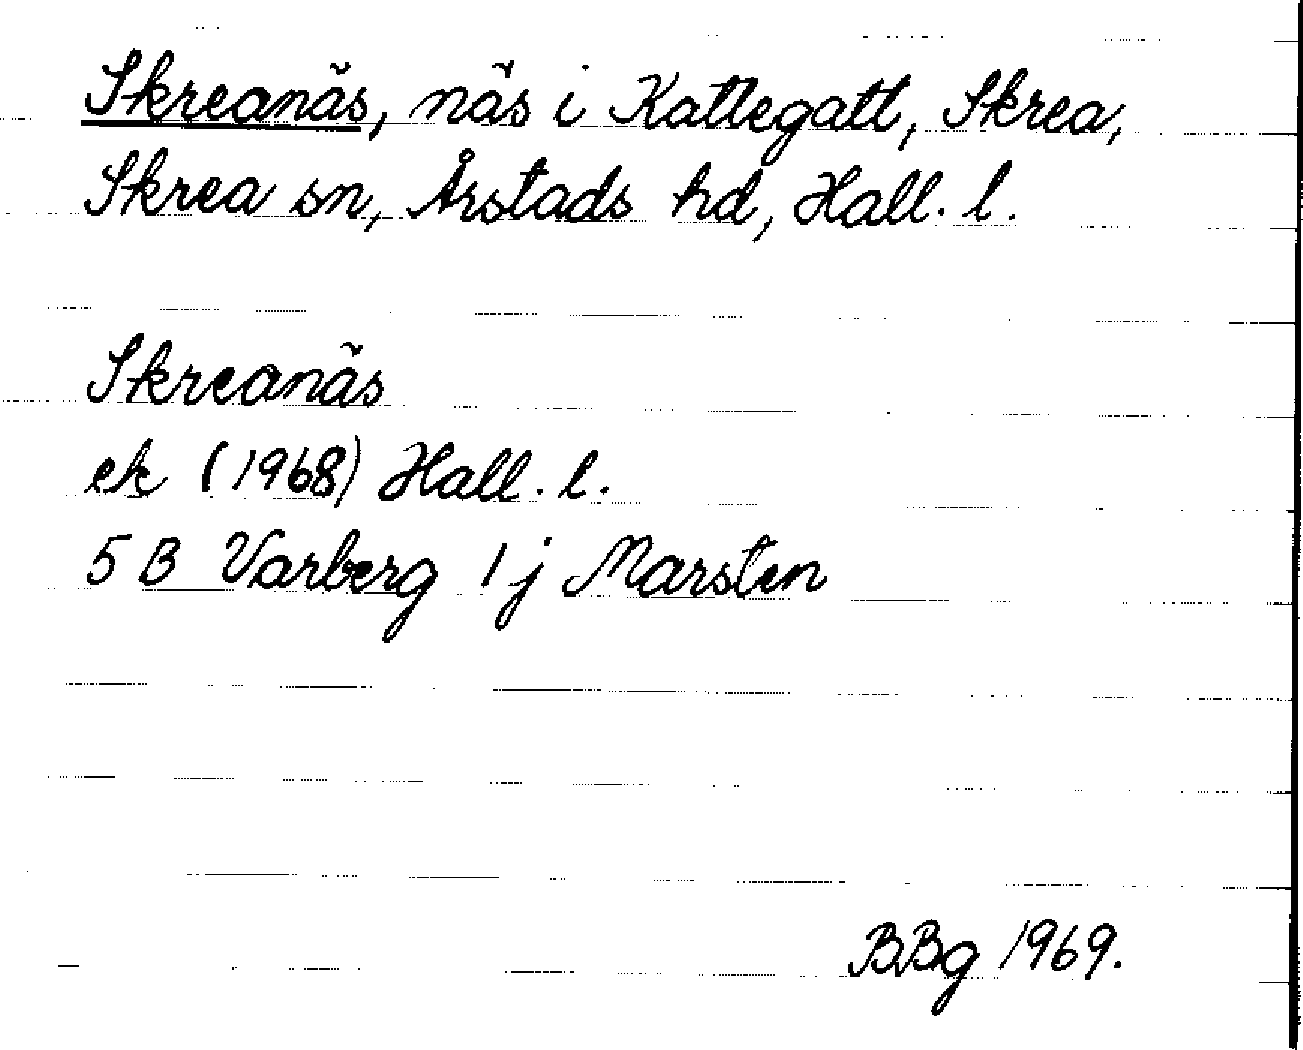 Skreanäs, näs i Kattegatt, Skrea,
Skrea sn, Årstads hd, Hall. l.
Skreanäs
ek (1968) Hall. l.
5 B Varberg 1 j Marsten
BBg 1969.